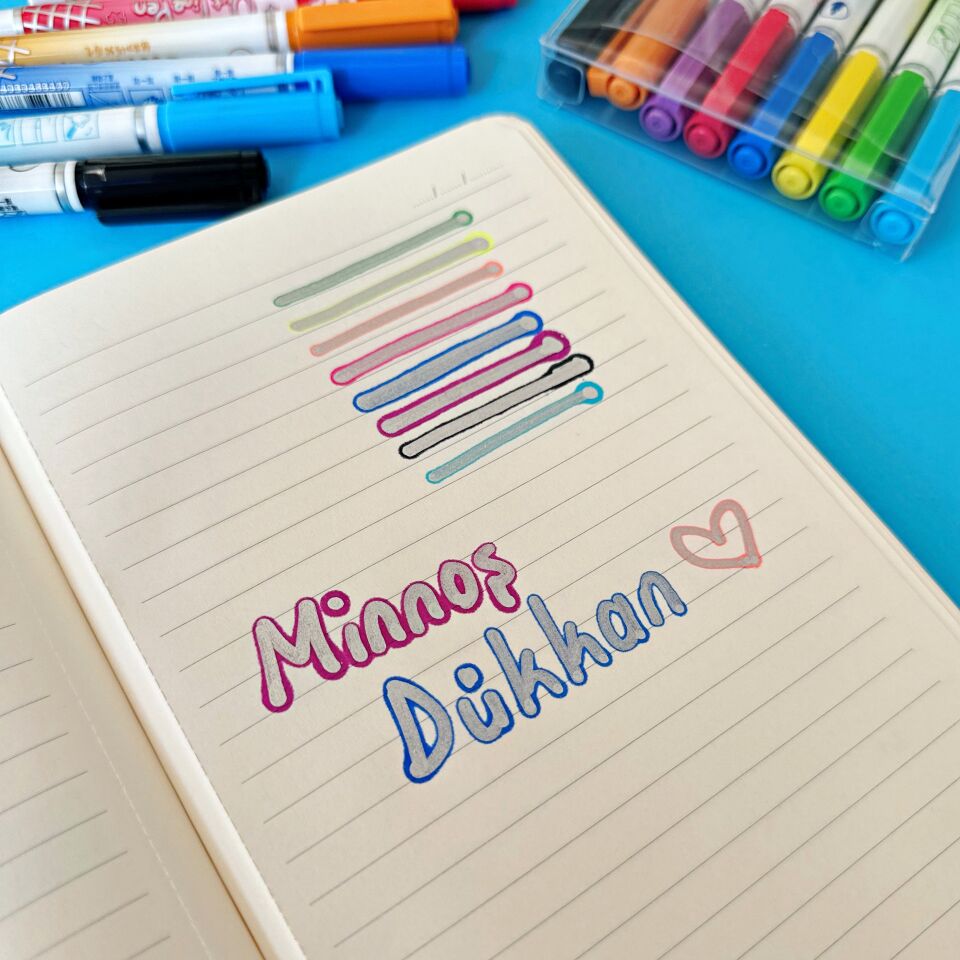 Minnoş
Dükkan